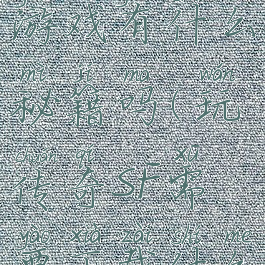 游戏有什么
mì jí ma wán
秘籍吗(玩
chuán qí xū
传奇SF需
yào xià zài